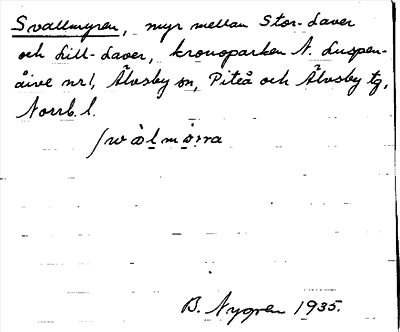 Svallmyren, myr mellan Stor-Laver
och Lill-Laver, kronoparken N. Luspen-
åive nr 1, Älvsby sn, Piteå och Älvsby tg,
Norrb. l.
B. Nygren 1935.